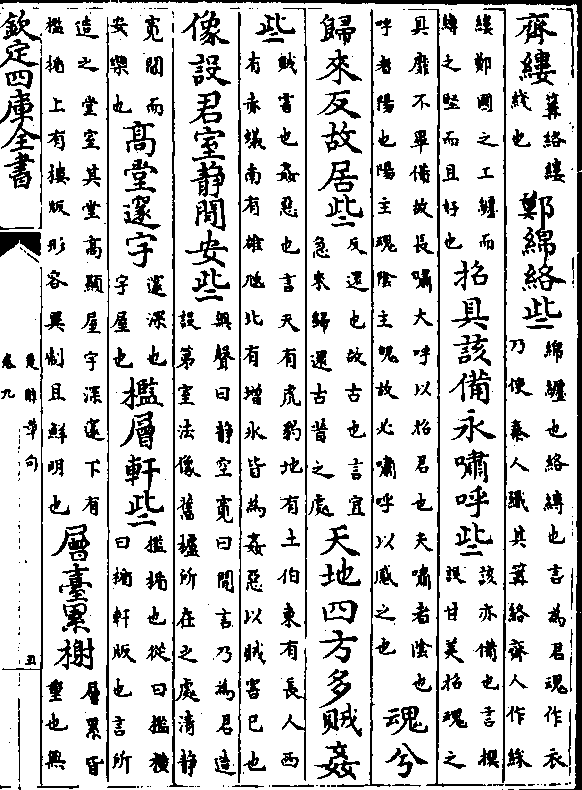 齊縷篝絡縷綫也鄭綿絡些綿纒也絡縛也言為君魂作衣乃使秦人職其篝絡齊人作綵
縷鄭國之工纒而縛之堅而且好也招具該備永嘯呼些該亦備也言撰設甘美招魂之
具靡不畢備故長嘯大呼以招君也夫嘯者陰也呼者陽也陽主魂陰主魄故必嘯呼以感之也魂兮
歸來反故居些反還也故古也言宜急來歸還古昔之處天地四方多賊姦
些賊害也姦惡也言天有虎豹地有土伯東有長人西有赤螘南有雄虺北有增氷皆為姦惡以賊害巳也
像設君室静閒安些無聲曰静空寛曰閒言乃為君造設第室法像舊廬所在之處清静
寛閒而安樂也高堂邃宇邃深也宇屋也檻層軒些檻楯也從曰檻横曰楯軒版也言所
造之堂室其堂高顯屋宇深邃下有檻楯上有樓版形容異制且鮮明也層臺累榭層累皆重也無
欽定四庫全書
楚辭章句
卷九
五